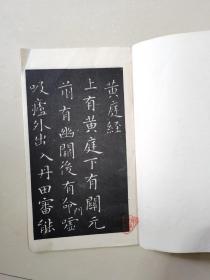 黃庭經
上有黃庭下有關元
前有幽闕後有命門噓
吸廬外出入丹田審能